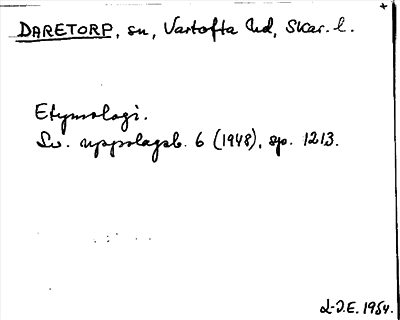 DARETORP, sn, Vartofta hd, Skar. l.
Etymologi.
Sv. uppslagsb. 6 (1948), sp. 1213.
L-I.E. 1954.